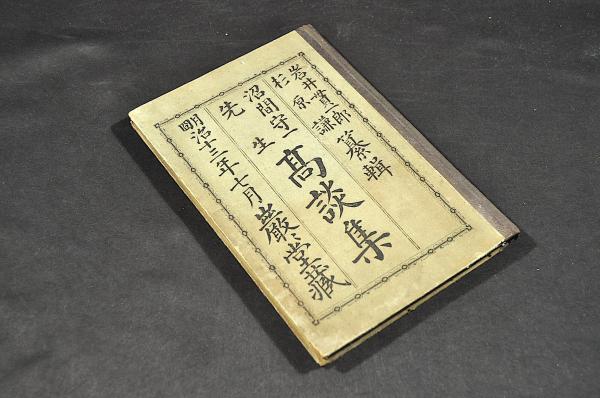 岩井貫一郎
杉原謙
纂輯
沼間守一
先生
高談集
明治十三年十月
巖々堂藏